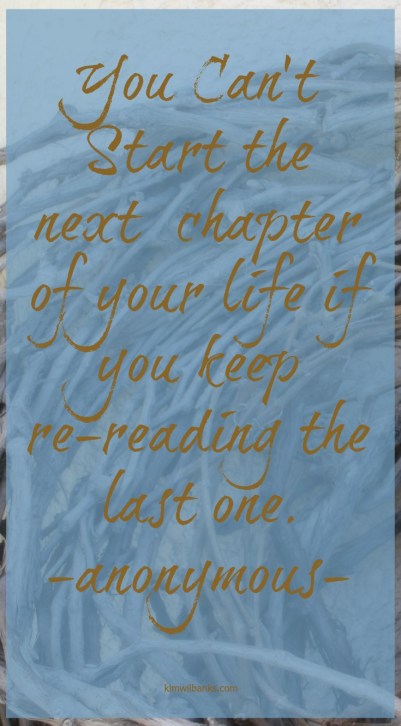 You Can't
Start the
next chapter
of your life if
you keep
re-reading the
last one.
-anonymous-
kimwilbanks.com